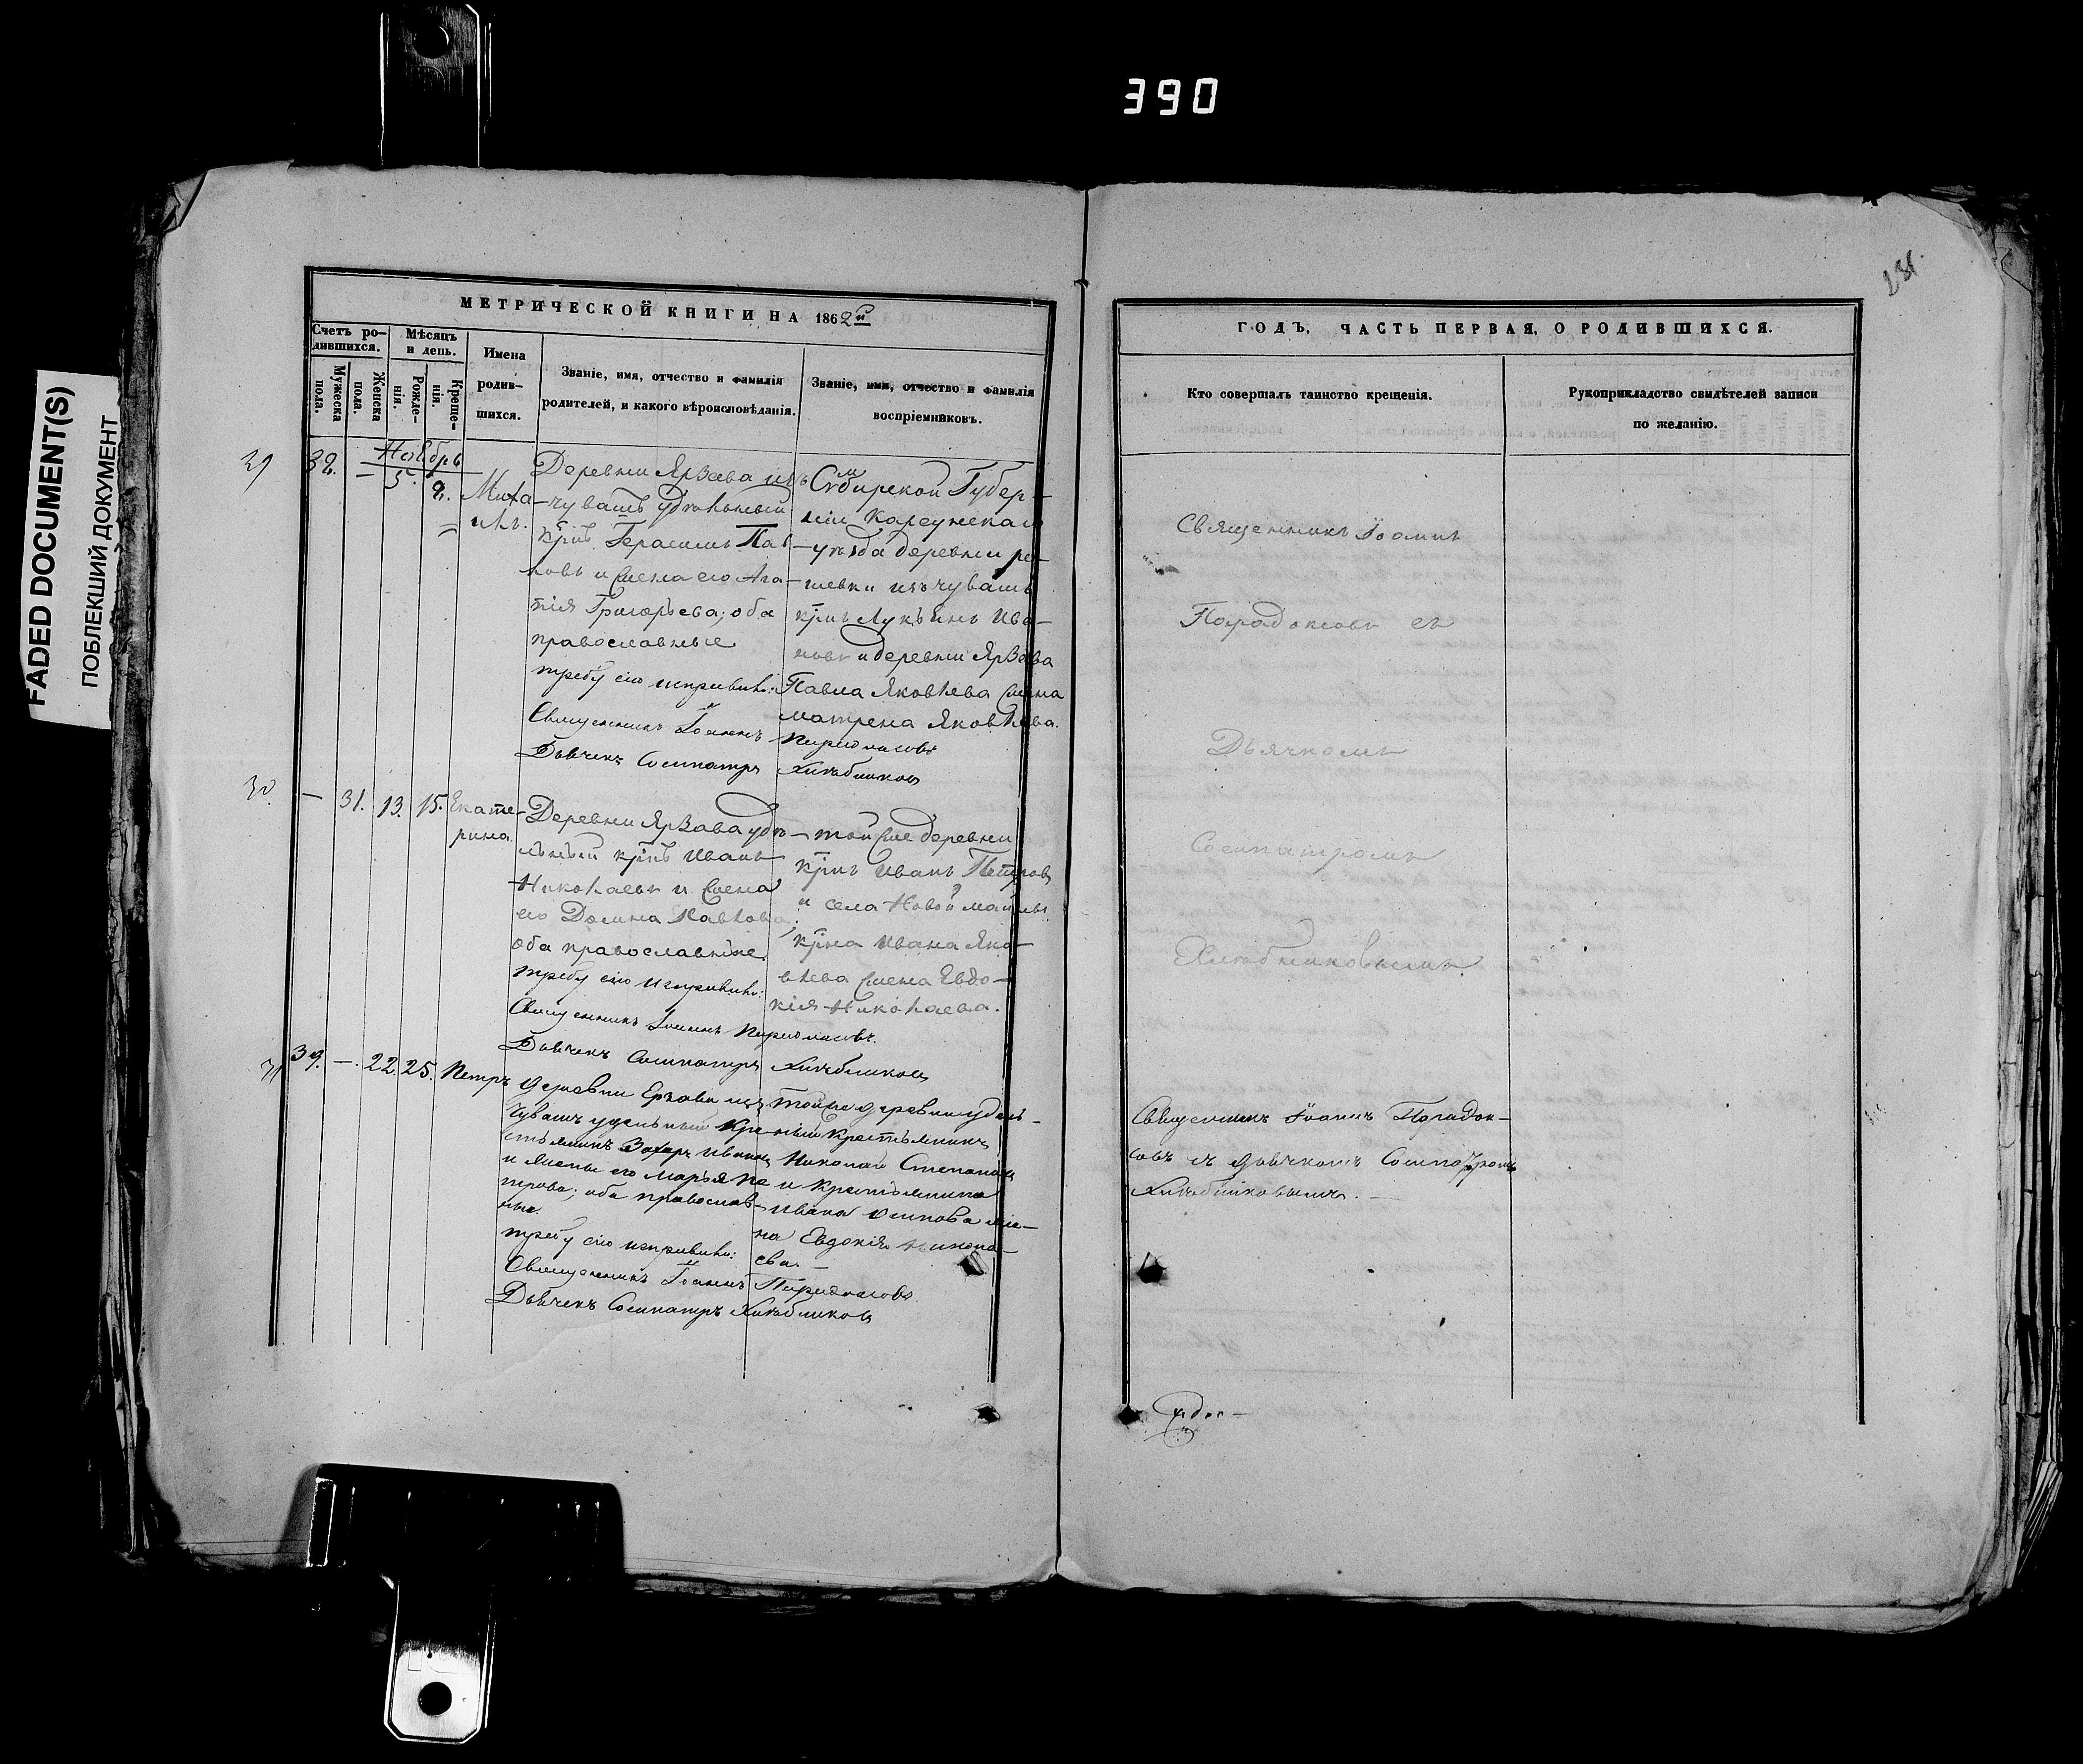 390
FADED DOCUMENT(S)
ПОБЛЕКШИЙ ДОКУМЕНТ
МЕТРИЧЕСКОЙ КНИГИ НА 1862й
Счетъ ро-
дившихся.
Мужеска
пола.
Женска
пола.
Мѣсяцъ
и день.
Рожде-
нія.
Креще-
нія.
Имена
родив-
шихся.
Званіе, имя, отчество и фамилія
родителей, и какого вѣроисповѣданія.
Званіе, имя, отчество и фамилія
воспріемниковъ.
Ноябрь
29
5.
Миха-
илъ.
Деревни
чувашъ удѣльный
крнъ Герасимъ Пав-
ловъ и жена его Ага-
пія Григорьева; оба
православные
требу сію исправили:
Священникъ Іоаннъ
Дьячекъ Сосипатръ Хлѣбников
Симбирской Губер-
ніи Карсунскаго
уѣзда деревни
изъ чувашъ
крнъ Ива-
новъ и деревни
Павла Яковлева жена
матрена Яковлева.
30.
—
31.
13.
15.
Екате-
рина
Деревни удѣ-
льный крнъ Иванъ
Николаевъ и жена
его Домна Павлова
оба православные.
требу сію исправили:
Священникъ Іоаннъ
Дьячекъ Сосипатръ Хлѣбников
той же деревни
крнъ Иванъ Петров
и села Новой майны
крна Ивана Яко-
влева жена Евдо-
кія Николаева.
31
39.
—
22.
25.
Петръ
деревни
чувашъ удельный кре-
стьянинъ Захаръ Иванов
и жены его марья Пе-
трова; оба православ-
ные.
требу сію исправили:
Священникъ Іоаннъ
Дьячекъ Сосипатръ Хлѣбников
той же деревни удель-
ный крестьянинъ
Николай Степанов
и крестьянина
Ивана Осипова же-
на Евдокія Никола-
ева. —
ГОДЪ, ЧАСТЬ ПЕРВАЯ, О РОДИВШИХСЯ.
Кто совершалъ таинство крещенія.
Рукоприкладство свидѣтелей записи
по желанію.
Священникъ Іоаннъ
Парадоксовъ съ
Дьячкомъ
Сосипатромъ
Хлѣбниковымъ.
Священникъ Іоаннъ Парадок-
совъ съ дьячкомъ Сосипатромъ
Хлѣбниковымъ. —